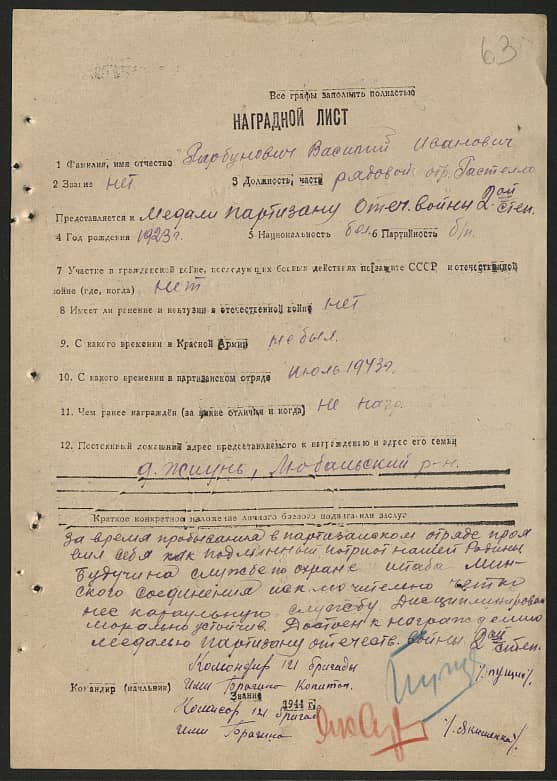 63
Все графы заполнить полностью
НАГРАДНОЙ ЛИСТ
1 Фамилия, имя отчество Гарбунович Василий Иванович
2 Звание нет 3 Должность, часть рядовой отр. Гастелло
Представляется к Медали партизану отеч. войны 2-ой степ.
4 Год рождения 1923 г. 5 Национальность бел 6 Партийность б/п.
7 Участие в гражданской войне, последующих боевых действиях по защите СССР и отечественной
войне (где, когда) нет
8 Имеет ли ранение и контузии в отечественной войне нет
9. С какого времени в Красной Армии не был.
10. С какого времени в партизанском отряде июль 1943 г.
11. Чем ранее награждён (за какие отличия и когда) не нагр.
12. Постоянный домашний адрес представляемого к награждению и адрес его семьи
д. Жилунь, Любаньский р-н.
Краткое конкретное изложение личного боевого подвига или заслуг
За время пребывания в партизанском отряде проя
вил себя как подлинный патриот нашей Родины
Будучи на службе по охране штаба Мин-
ского соединения исключительно четко
нес караульную службу. Дисциплинирован
морально устойчив. Достоен к награждению
медалью партизану отечеств. войны 2-ой степ.
Командир 121 бригады
Командир (начальник) имени Брагина Капитан /Пущин/.
Звание
1944 г.
Комисар 121 бригады
имени Брагина /.Якименко/.